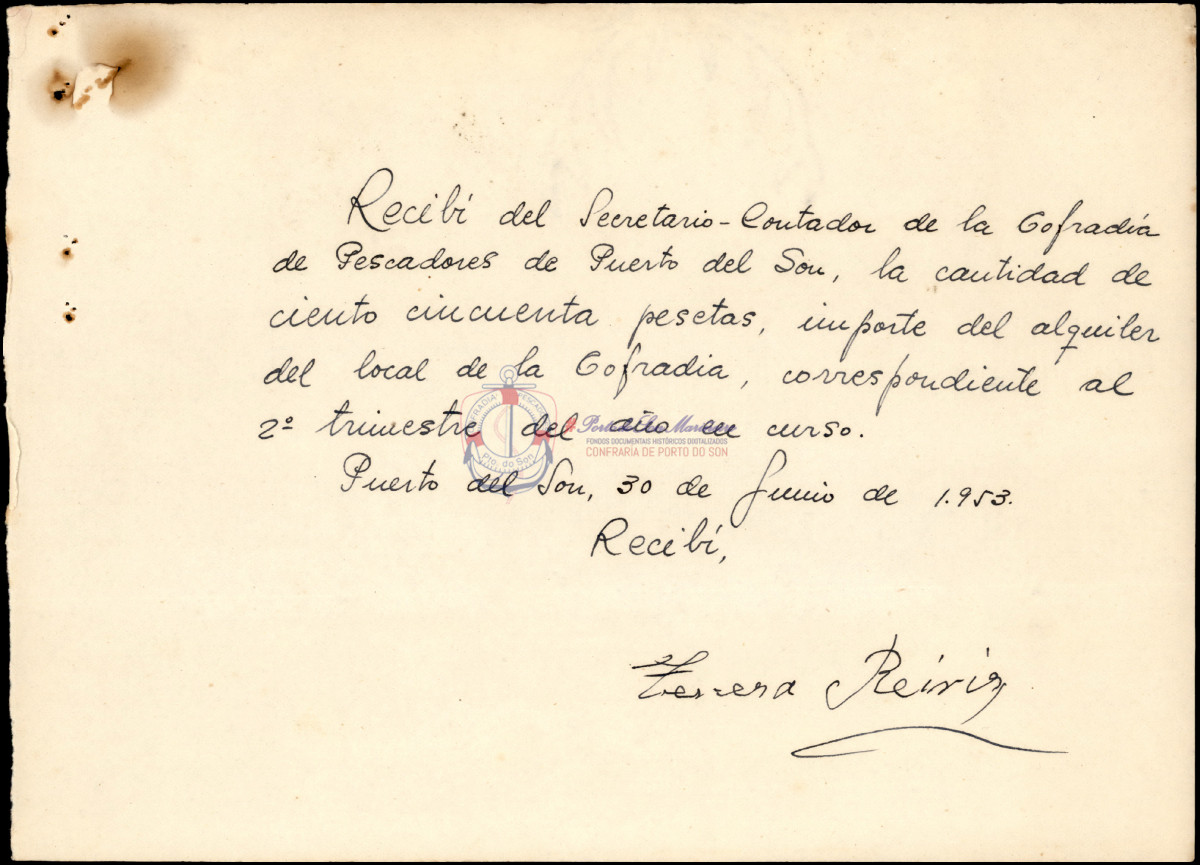 Recibí del Secretario-Contador de la Cofradía
de Pescadores de Puerto del Son, la cantidad de
ciento cincuenta pesetas, importe del alquiler
del local de la Cofradia, correspondiente al
2º trimestre del año en curso.
Puerto del Son, 30 de Junio de 1.953.
Recibí,
Reiriz
Pto. do Son
FONDOS DOCUMENTAIS HISTÓRICOS DIXITALIZADOS
CONFRARIA DE PORTO DO SON